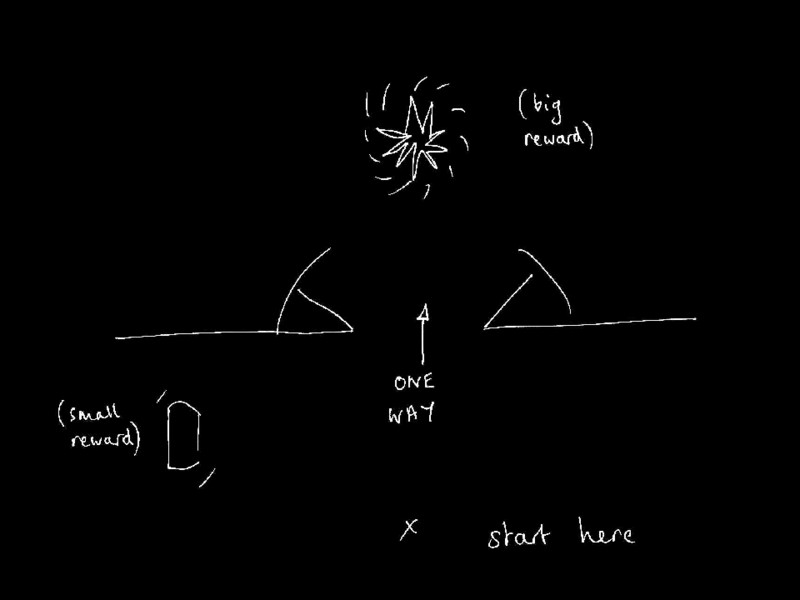 (big
reward)
ONE
WAY
(small
reward)
x start here